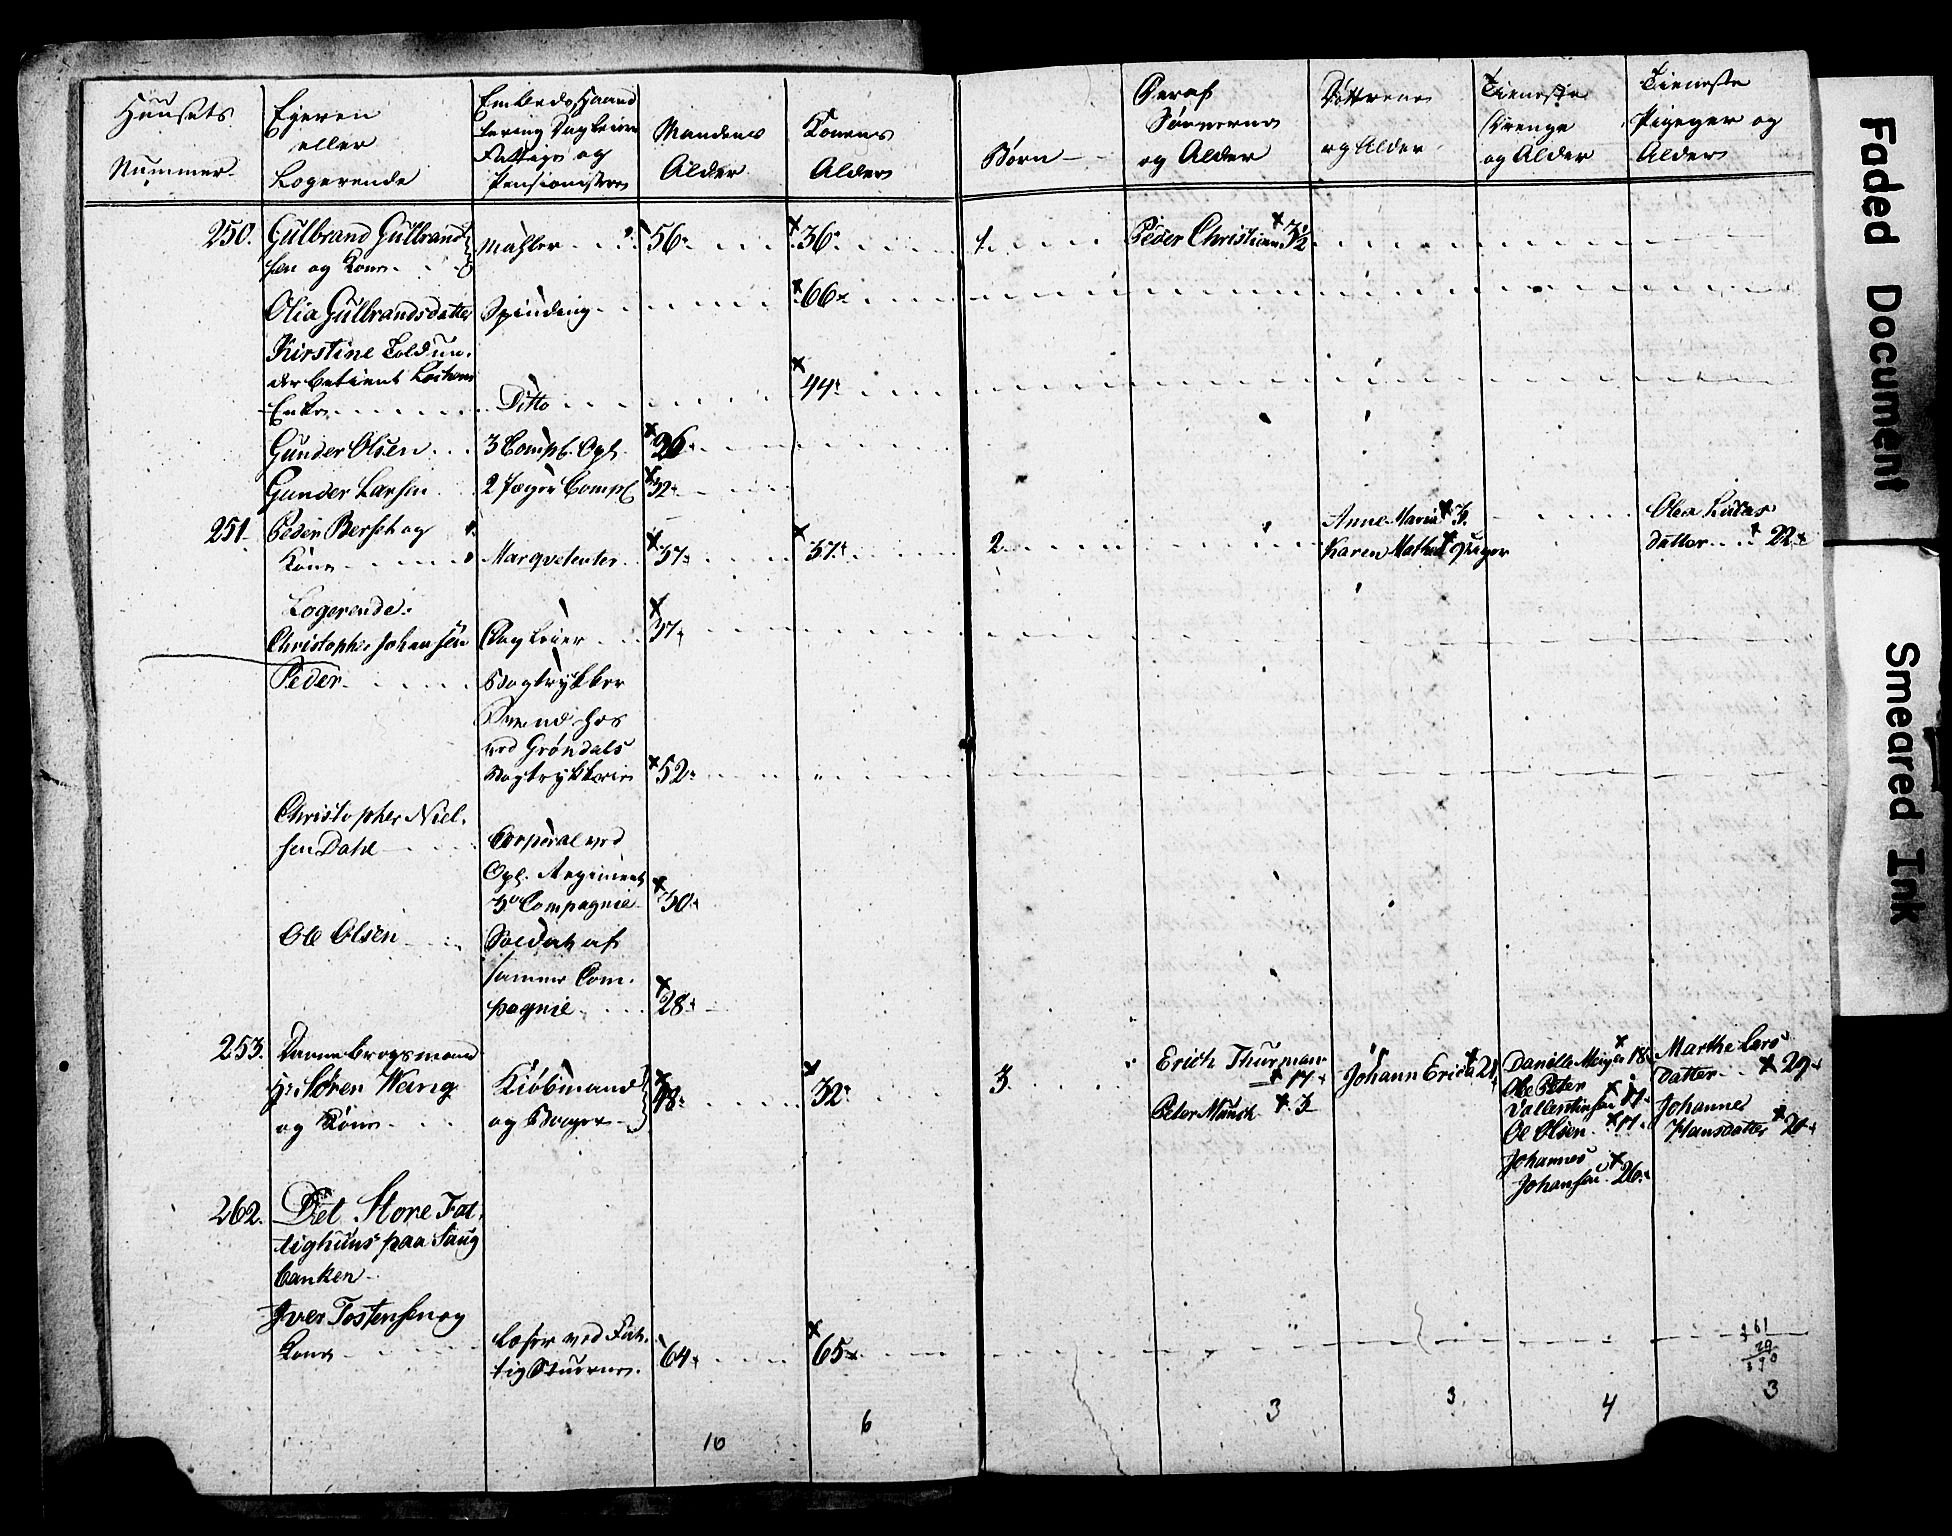 Huusets
Nummer.
Ejeren
eller
Logerende
Embede, Haand
tering Dagleiere
Fattige og
Pensionister
Mandens
Alder
Konens
Alder
Børn
Deraf
Sønnerne
og Alder
Døttrene
og Alder
Tieneste
Drenge
og Alder
Tieneste
Piger og
Alder
250. Gulbrand Gulbrand
sen og Kone
Mahler 56 36 1. Peder Christian 3½
Olia Gulbrandsdatter Spinding 66
Kirstine Toldun.
derbetient
Enke Ditto 44
Gunder Olsen 3 Comp. Opl. 26
Gunder Larsen 2 Jæger Comp 32
251. Peder Berset og
Kone Marqvetenter 37 37 2
Anne Maria 3.
Karen Math
Olea Lucas
datter 22
Logerende.
Christopher Johansen Dagleier 37
Peder Bogtrykker
Svend hos
ved Grøndals
Bogtrykkerie 52
Christopher Niel.
sen Dahl
Corporal ved
Opl. Regiment
3 Compagnie 30
Ole Olsen
Soldat af
samme Com.
pagnie 28
253. Dannebrogsmand
Hr. Søren Wang
og Kone
Kiøbmand
og Bager
48 32 3.
Erich Thurman
17
Peter Munch 3
Johann Erica 21
Danille Meyer 18
Ole Peter
Vallentinsen 17
Ole Olsen 17
Johannes
Johansen 26
Marthe Lars
datter 29
Johanne
Hansdatter 20
262. Det Store Fat,
tighuus paa Saug
banken
Iver Tostensen og
Kone
Læser ved Fat.
tig Stuerne.
64 65
361
29
390
10 6 3 3 4 3
Faded Document
Smeared Ink